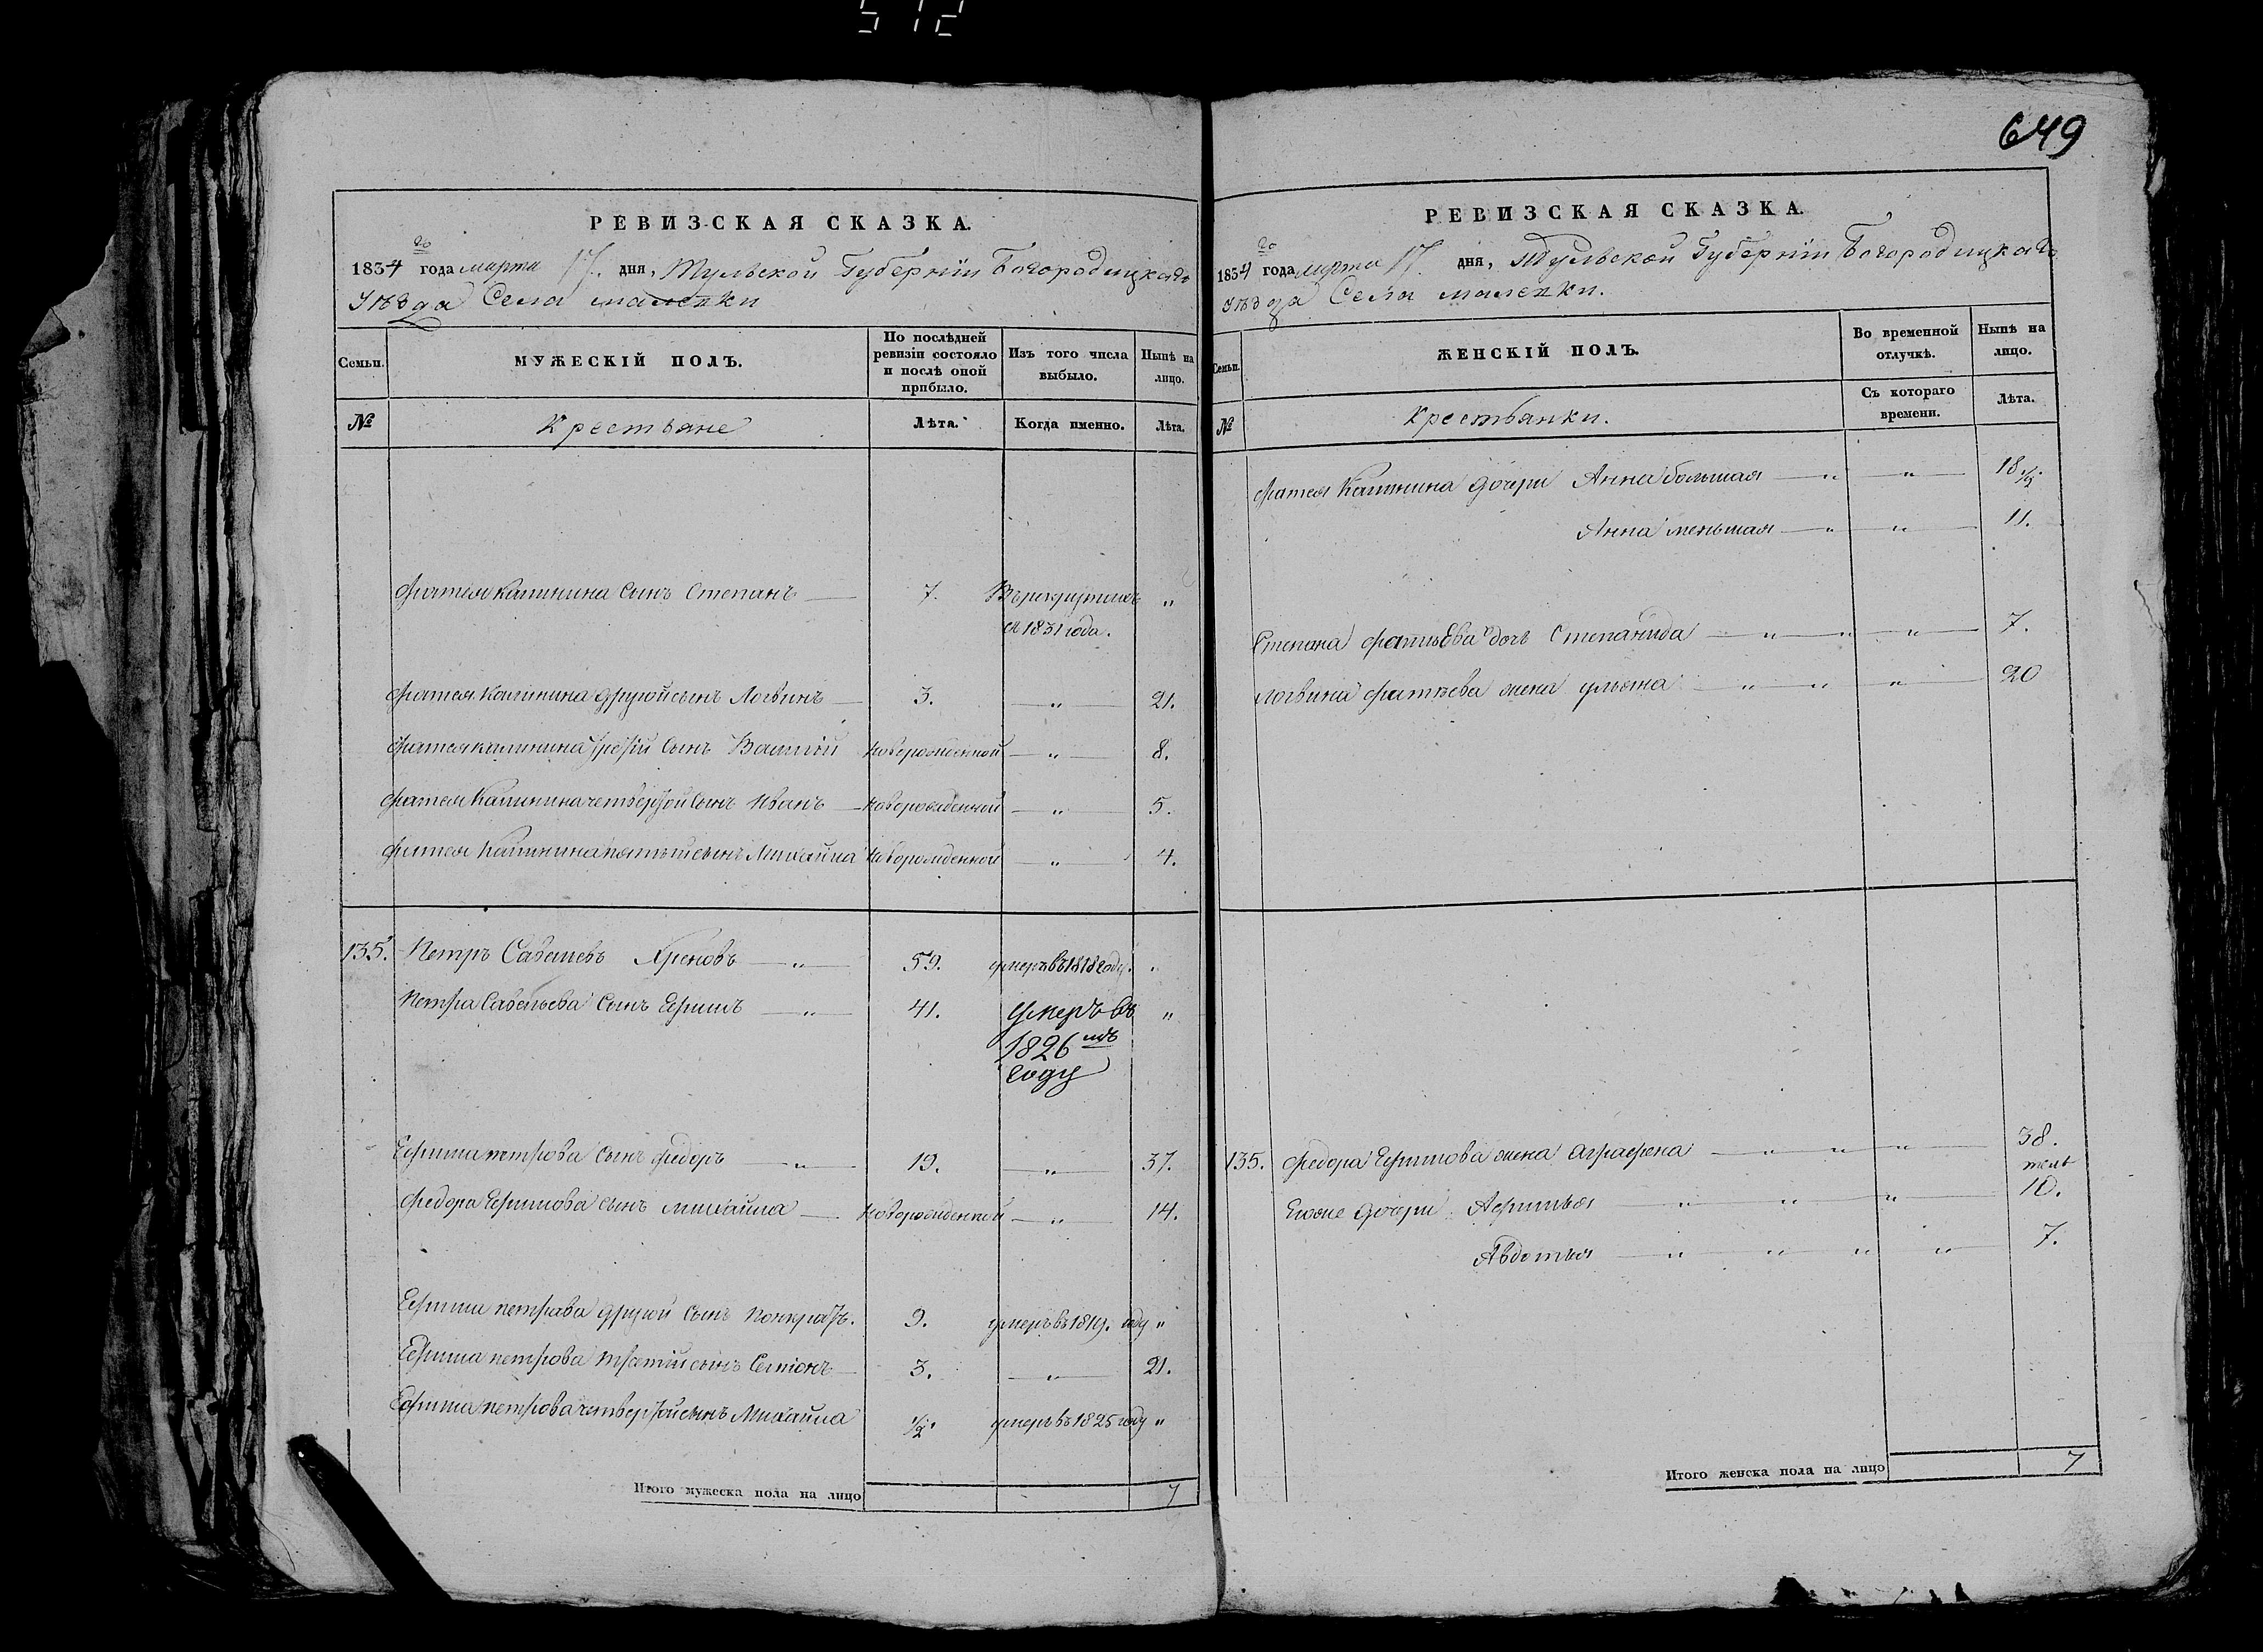 512
649
РЕВИЗСКАЯ СКАЗКА.
1834 го года марта 17. дня, Тульской Губерніи Богородицкаго
Уѣзда Села малевки
Семьи. МУЖЕСКІЙ ПОЛЪ. По послѣдней ревизіи состояло и послѣ оной прибыло. Изъ того числа выбыло. Нынѣ на лицо.
№ Крестьяне Лѣта. Когда именно. Лѣта.
Фатея Калинина сынъ Степанъ — 7. Въ рекрутахъ "
съ 1831 года.
Фатея Калинина другой сынъ Логвинъ — 3. — " — 21.
Фатея калинина третій сынъ Василій новорожденной — " — 8.
Фатея Калинина четвертой сынъ Иванъ — новорожденной — " — 5.
Фатея Калинина пятый сынъ Михайла новорожденной — " — 4.
135. Петръ Савельевъ Хреновъ — " — 59. умеръ въ 1818 году. "
Петра Савельева сынъ Ефимъ — " — 41. умеръ въ "
1826 мъ
году
Ефима петрова сынъ Федоръ — " — 19. — " — 37.
Федора Ефимова сынъ михайла — новорожденной — " — 14.
Ефима петрова другой сынъ Понкратъ. 9. умеръ въ 1819. году "
Ефима петрова третій сынъ Семіонъ — 3. — " — 21.
Ефима петрова четвертой сынъ Михайла 1/2. умеръ въ 1825 году "
Итого мужеска пола на лицо 7
РЕВИЗСКАЯ СКАЗКА.
1834 го года марта 17. дня, Тульской Губерніи Богородицкаго
Уѣзда Села малевки.
Семьи. ЖЕНСКІЙ ПОЛЪ. Во временной отлучкѣ. Нынѣ на лицо.
№ Крестьянки. Съ котораго времени. Лѣта.
Фатея Калинина дочери Анна большая — " — " — 18 1/2.
Анна меньшая — " — " — 11.
Степана Фатѣева дочь Степанида — " — " — " — 7.
Логвина Фатѣева жена ульяна — " — " — " — 20
135. Федора Ефимова жена Аграфена — " — " — " — 38.
Ево же дочери Афимья — " — " — " — 10.
Авдотья — " — " — " — " — 7.
Итого женска пола на лицо 7